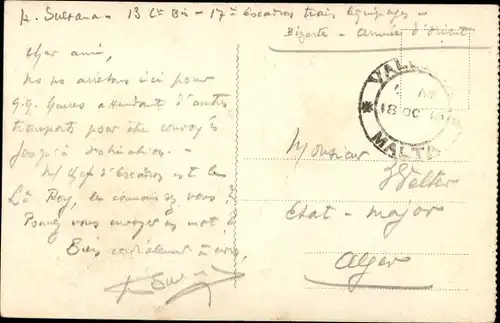 H. Sultana - 13 Cie Bis - 17e Escadron train Equipages -
Bizerte - Armée d'Orient
Cher ami,
Ns ns arretons ici pour
q.q. heures attendant d'autres
transports pour être convoyés
jusqu'à destination -
Ml chef d'Escadrons est le
Le Roy, le connaissez vous?
Pouvez vous envoyer un mot
Bien cordialement à vous,
VALLETTA
MALTA
Monsieur
Welter
Etat - major
Alger